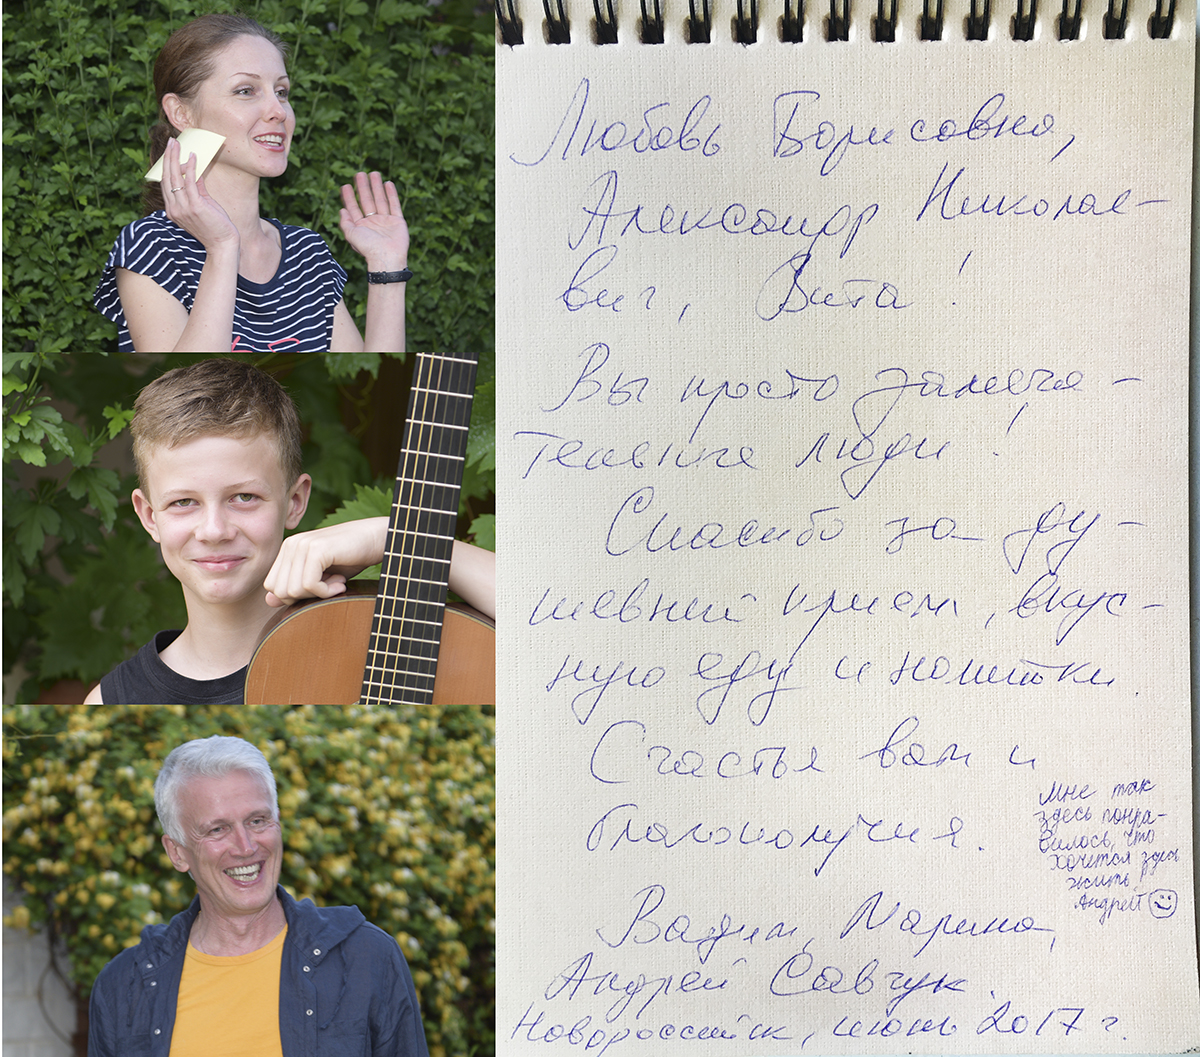 Любовь Борисовна,
Александр Николае-
вич, Вита!
Вы просто замеча-
тельные люди!
Спасибо за ду-
шевный прием, вкус-
ную еду и напитки.
Счастья вам и
благополучия.
Мне так
здесь понра-
вилось, что
хочется здесь
жить
Андрей
Вадим, Марина,
Андрей Савчук.
Новороссийск, июнь 2017 г.